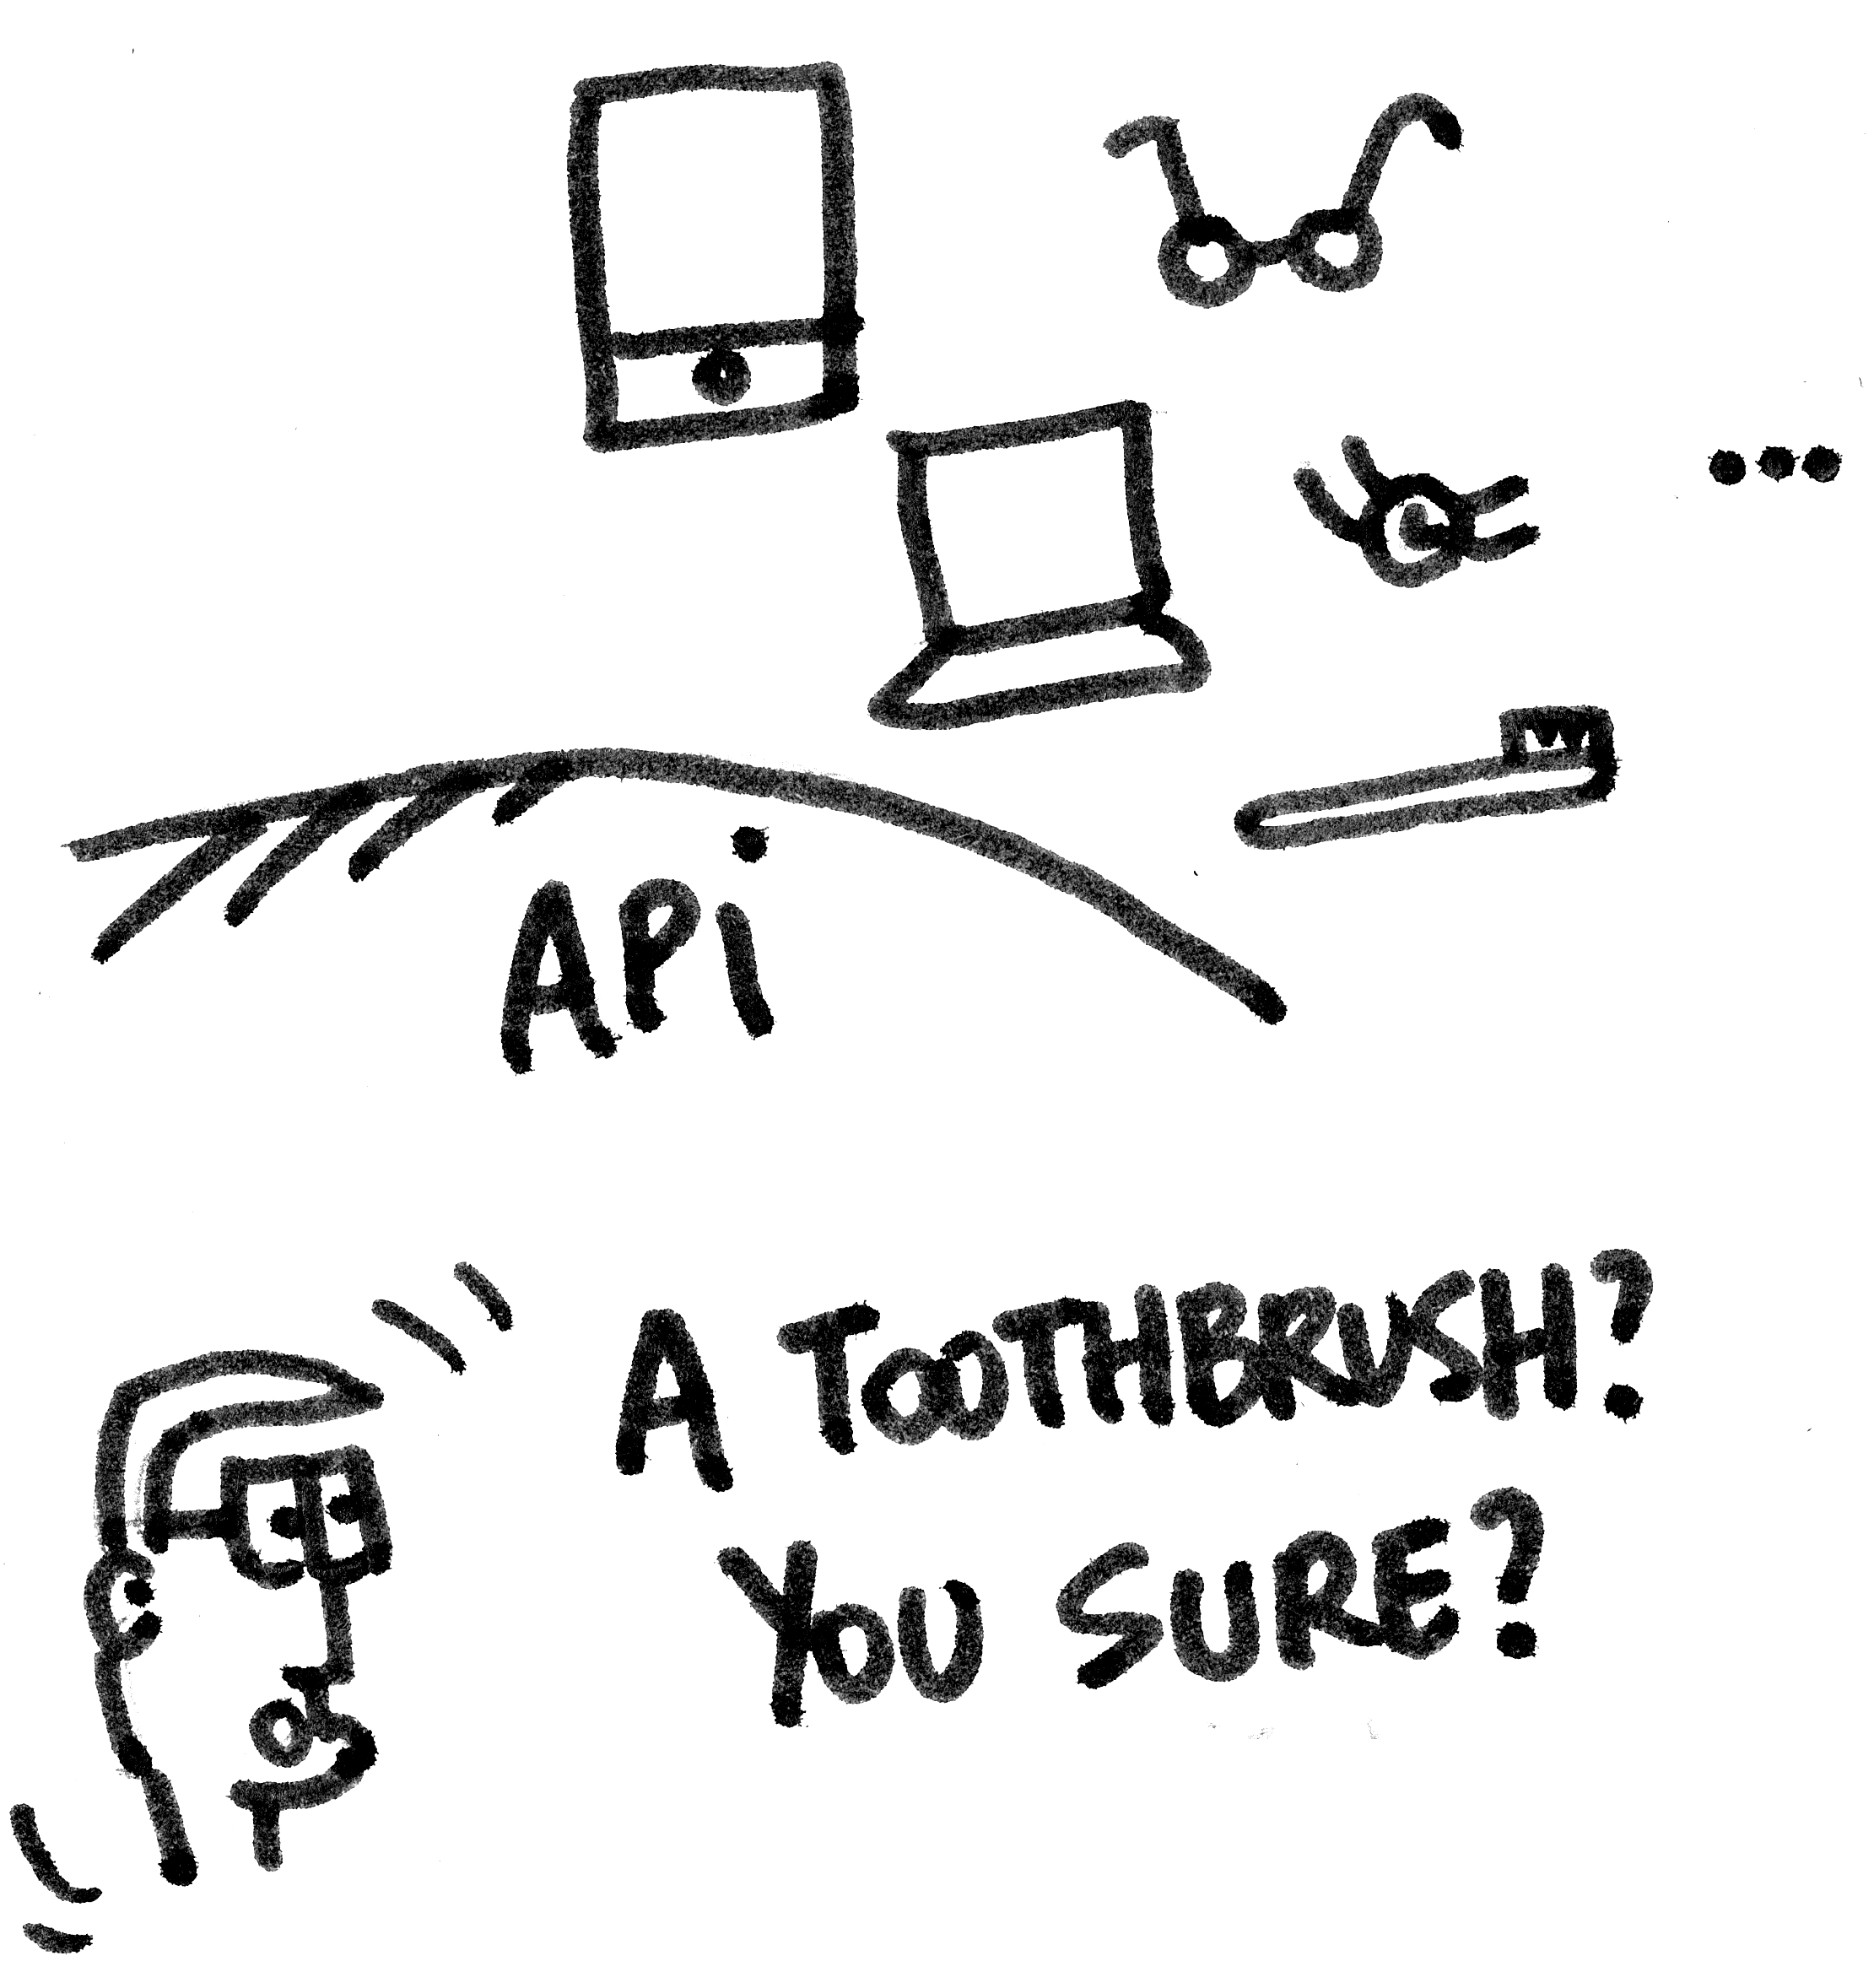 APi
A TOOTHBRUSH?
YOU SURE?